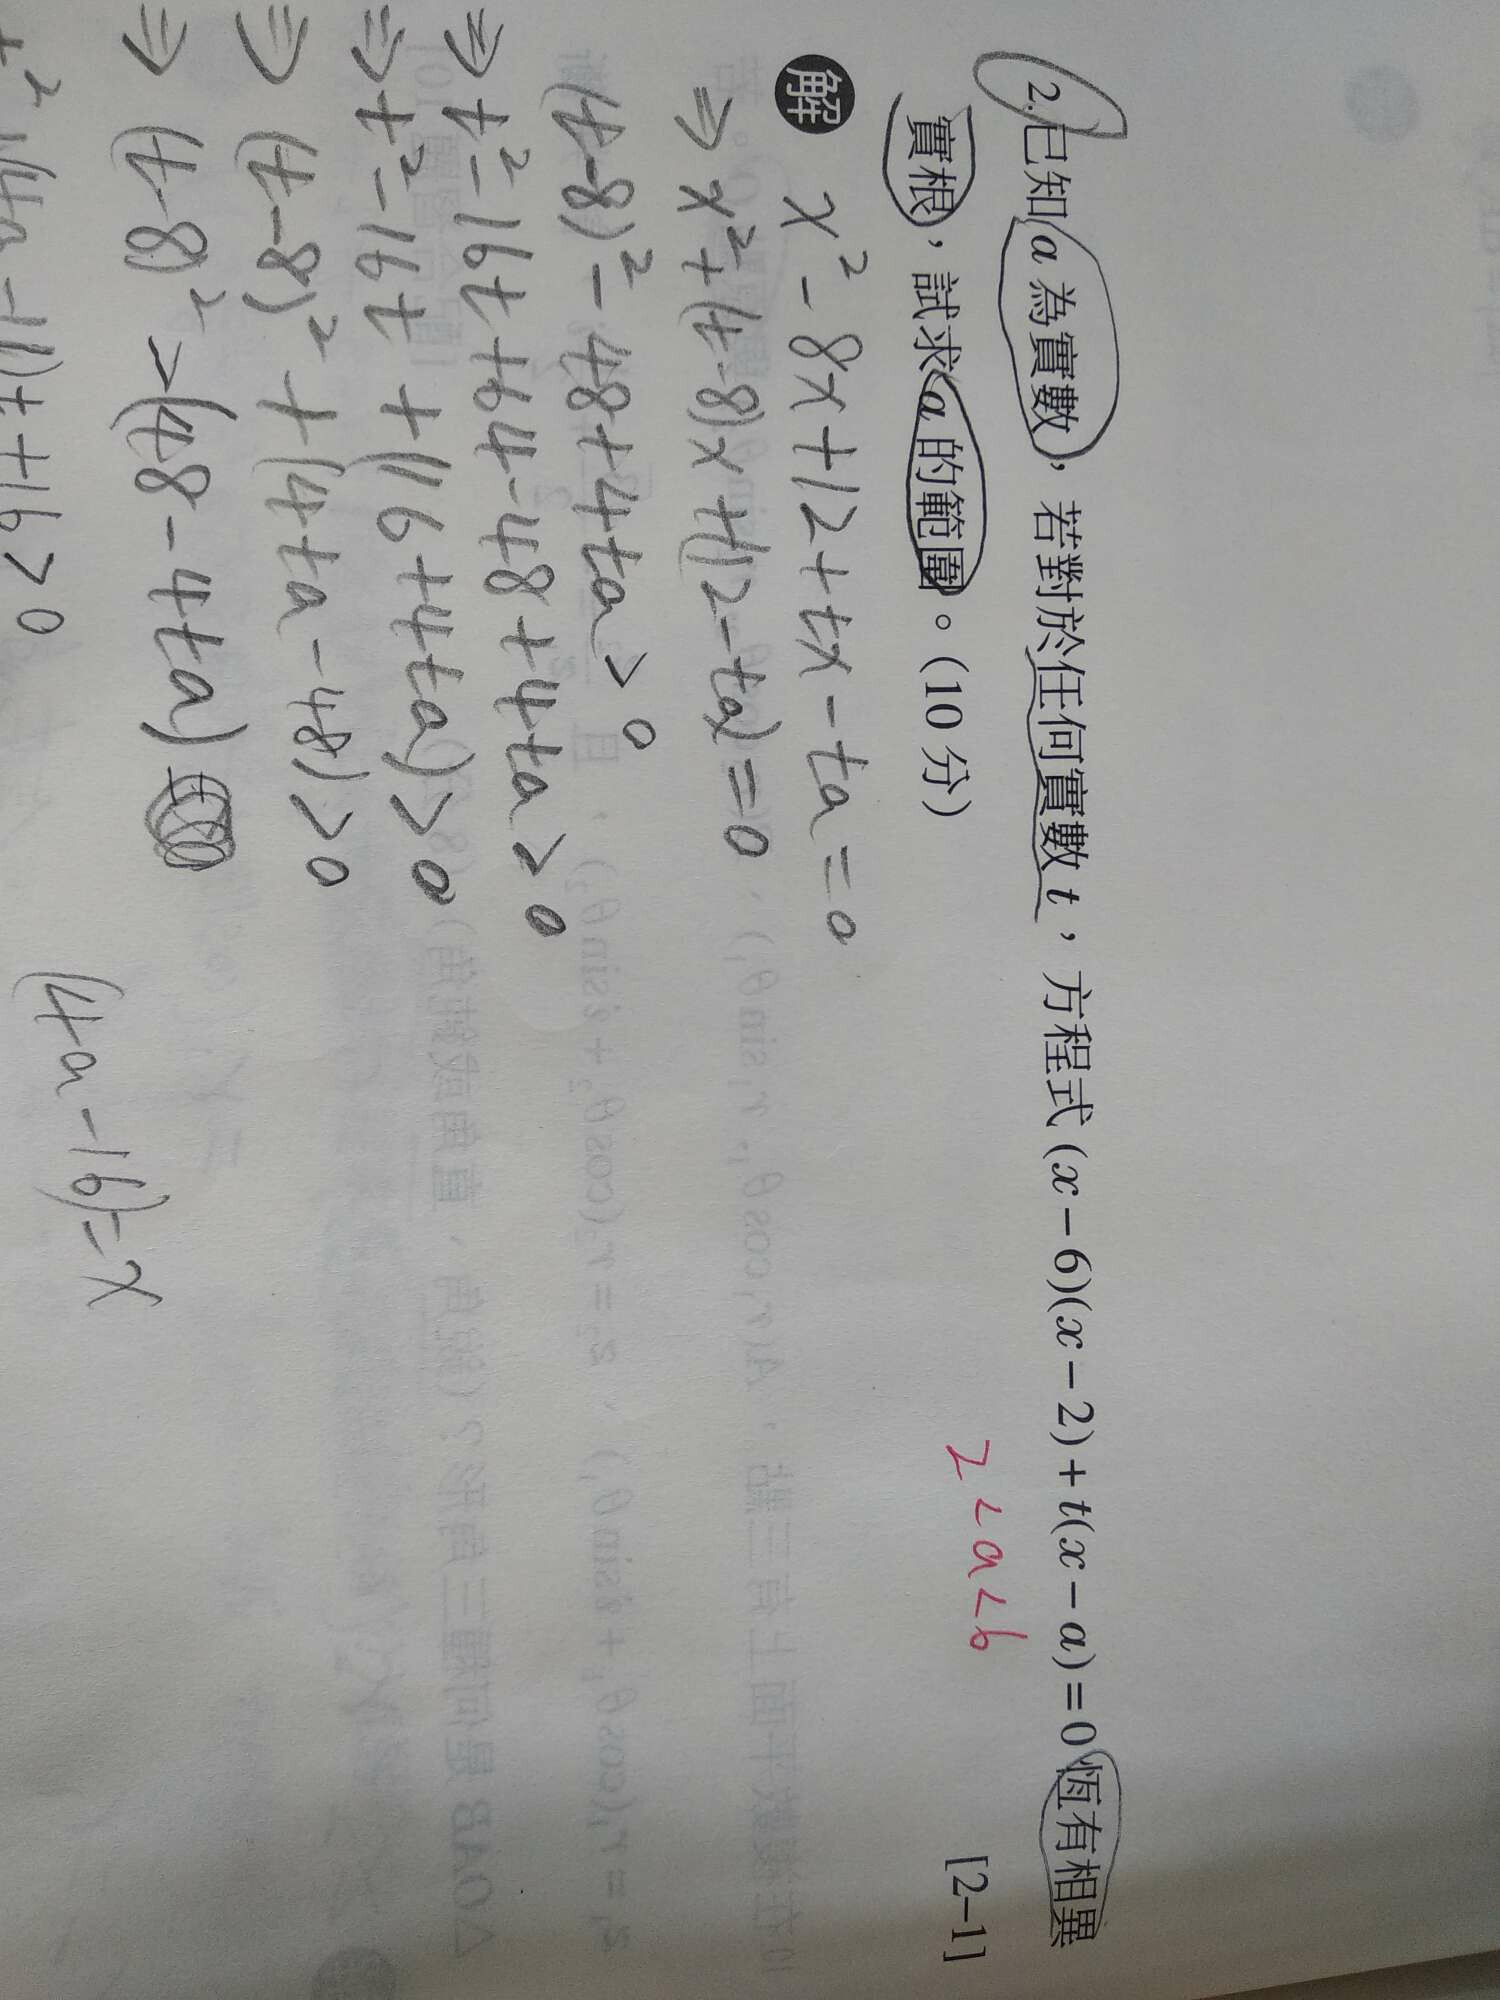 2.已知a為實數，若對於任何實數t，方程式(x－6)(x－2)＋t(x－a)＝0恆有相異
實根，試求a的範圍。(10分) 2<a<6 [2–1]
解 x²-8x+12+tx-ta=0
⇒ x²+(t-8)x+(12-ta)=0
(t-8)²-48+4ta>0
⇒ t²-16t+64-48+4ta>0
⇒ t²-16t+(16+4ta)>0
⇒ (t-8)²+(4ta-48)>0
⇒ (t-8)²>(48-4ta)
t²+(4a-16)t+16>0
(4a-16)=x